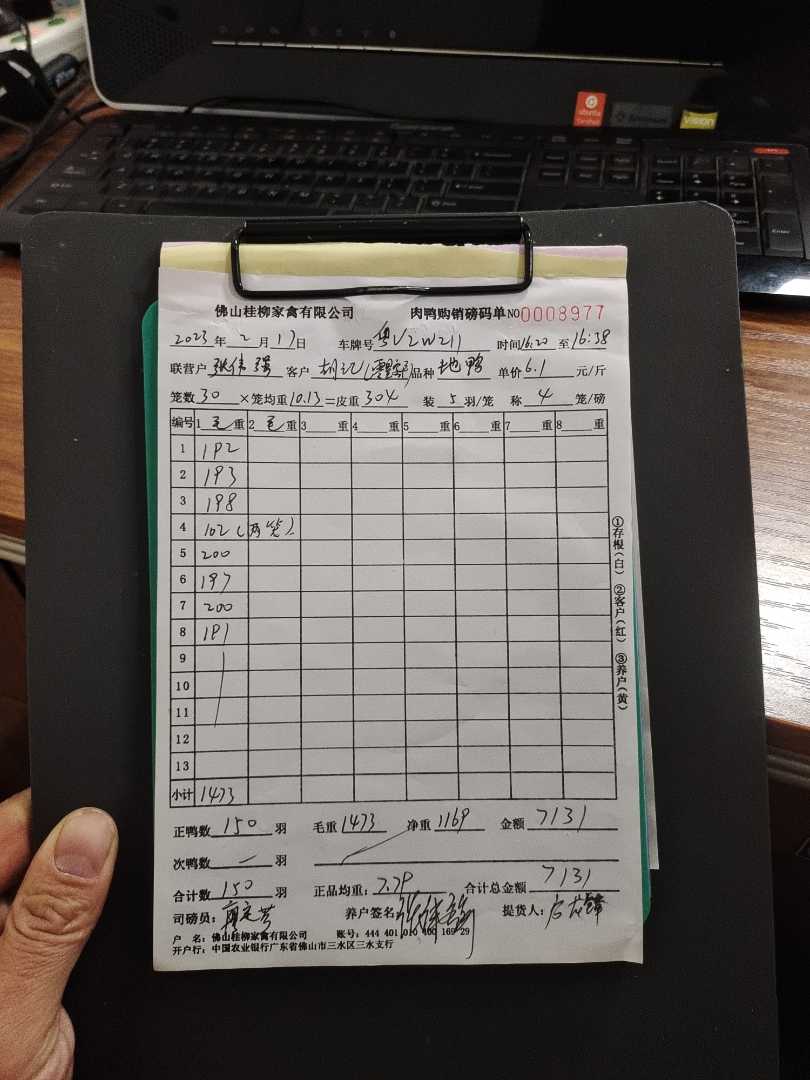 ubuntu
vision
佛山桂柳家禽有限公司 肉鸭购销磅码单NO 0008977
2023年2月17日 车牌号粤V2W211 时间16:20至16:38
联营户张伟强 客户胡记 品种地鸭 单价6.1元/斤
笼数30×笼均重10.13=皮重304 装5羽/笼 称4笼/磅
编号 1毛重 2毛重 3重 4重 5重 6重 7重 8重
1 192
2 193
3 198
4 102(两笼)
5 200
6 197
7 200
8 191
9
10
11
12
13
小计 1473
①存根(白) ②客户(红) ③养户(黄)
正鸭数150羽 毛重1473 净重1169 金额7131
次鸭数 羽
合计数150羽 正品均重:7.79 合计总金额7131
司磅员: 养户签名 提货人:
户 名:佛山桂柳家禽有限公司 账号:444 401 010 400 169 29
开户行:中国农业银行广东省佛山市三水区三水支行